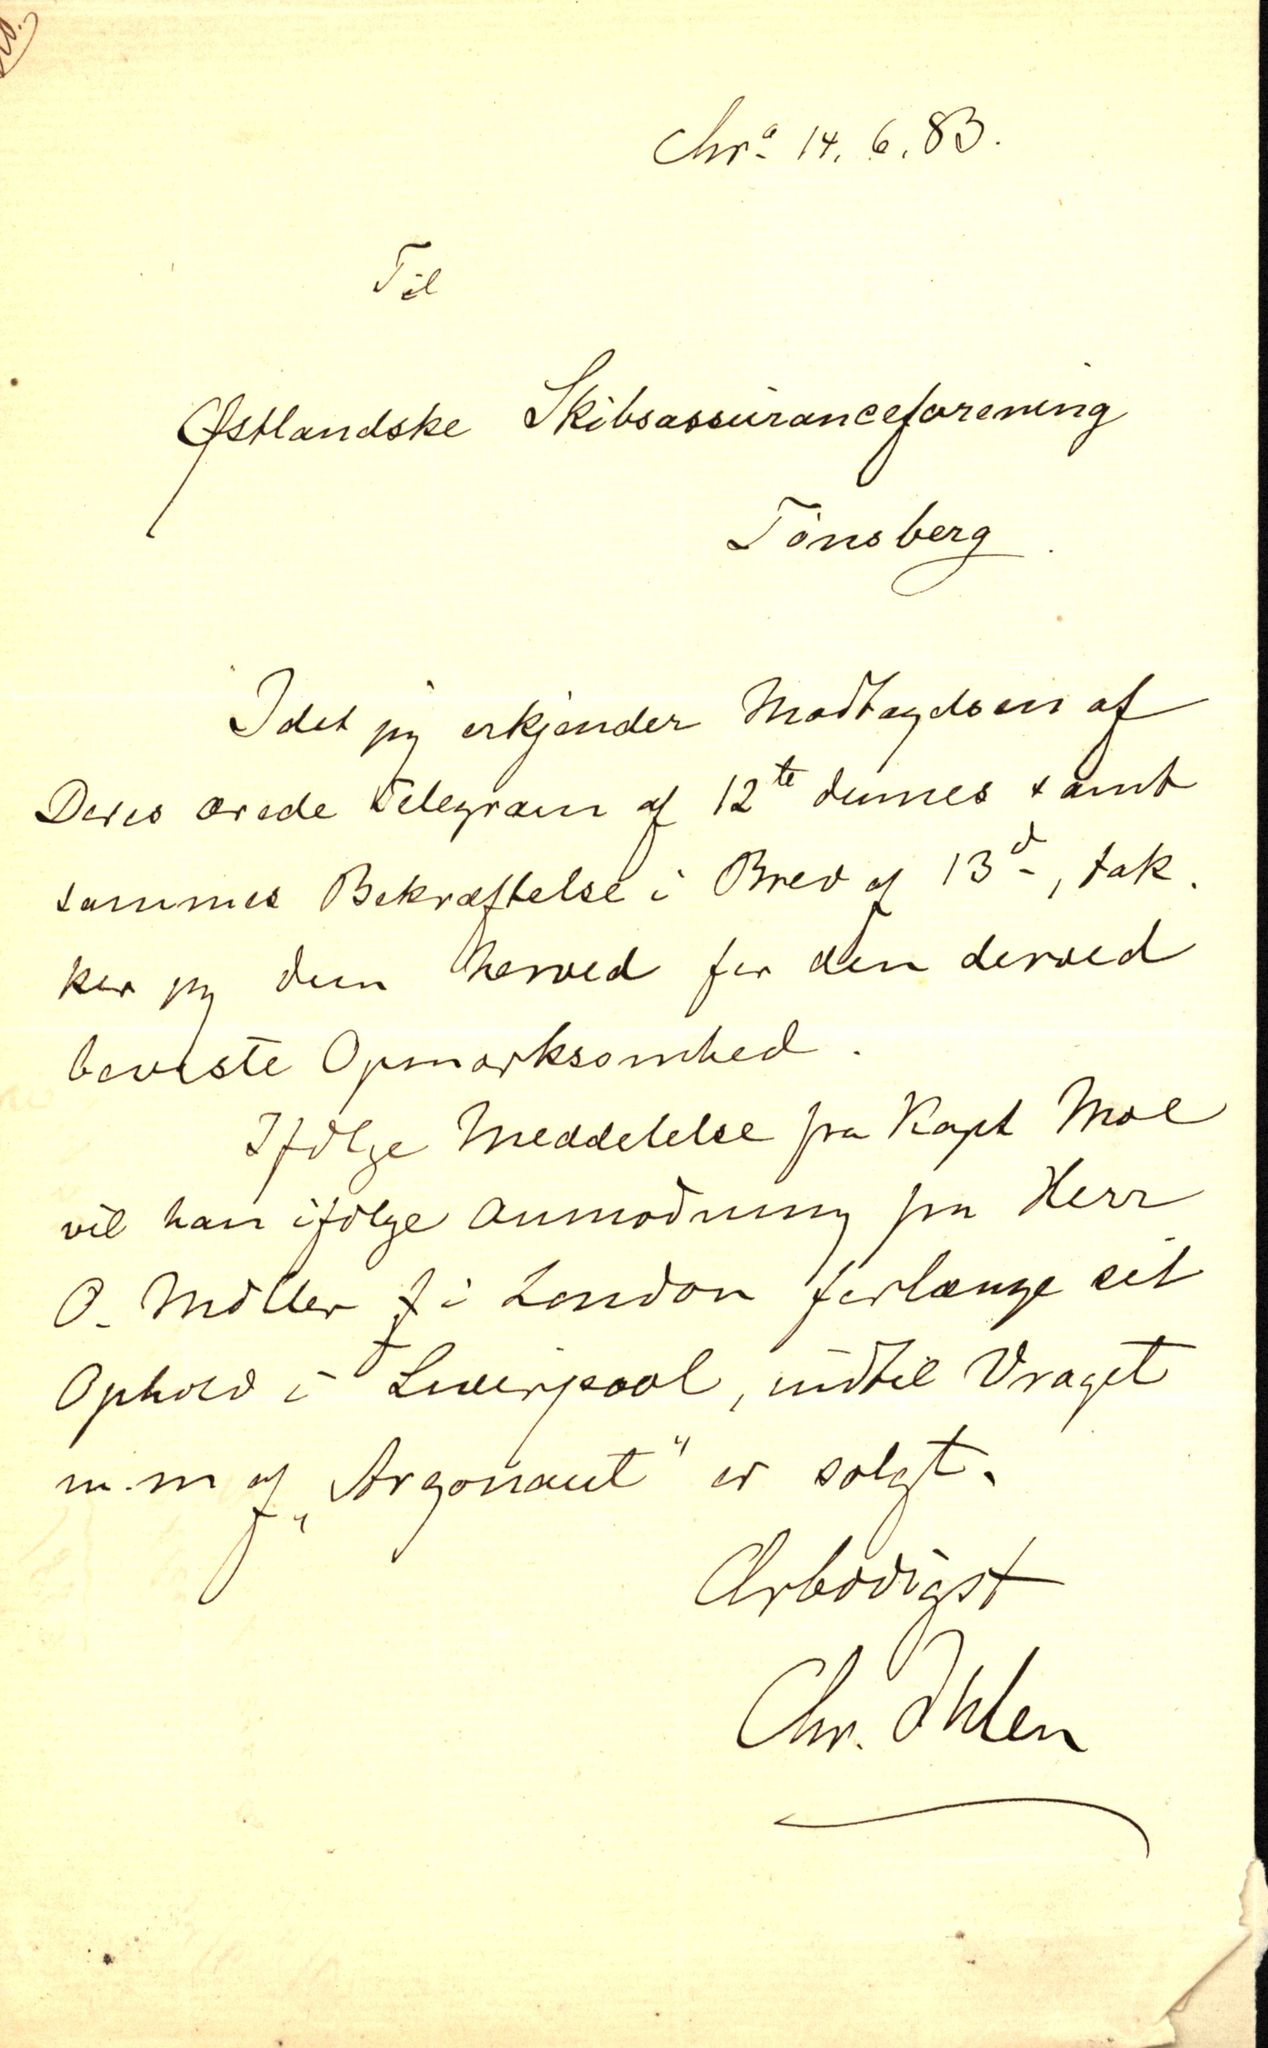 Chrª 14. 6. 83.
Til
Østlandske Skibsassuranceforening
Tönsberg.
Idet jeg erkjender Modtagelsen af
Deres ærede Telegram af 12te dennes samt
sammes Bekræftelse i Brev af 13d, tak-
ker jeg Dem herved for den derved
beviste Opmærksomhed.
Ifölge Meddelelse fra Kapt Moe
vil han ifölge Anmodning fra Herr
O. Möller i London forlænge sit
Ophold i Liverpool, indtil Vraget
m.m af „Argonaut" er solgt.
Ærbødigst
Chr. Ihlen